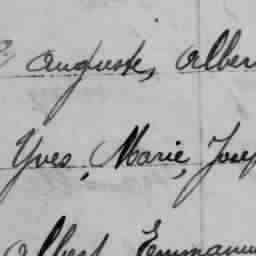 Auguste, Alber
Yves, Marie, Josep
Albert Emmanu